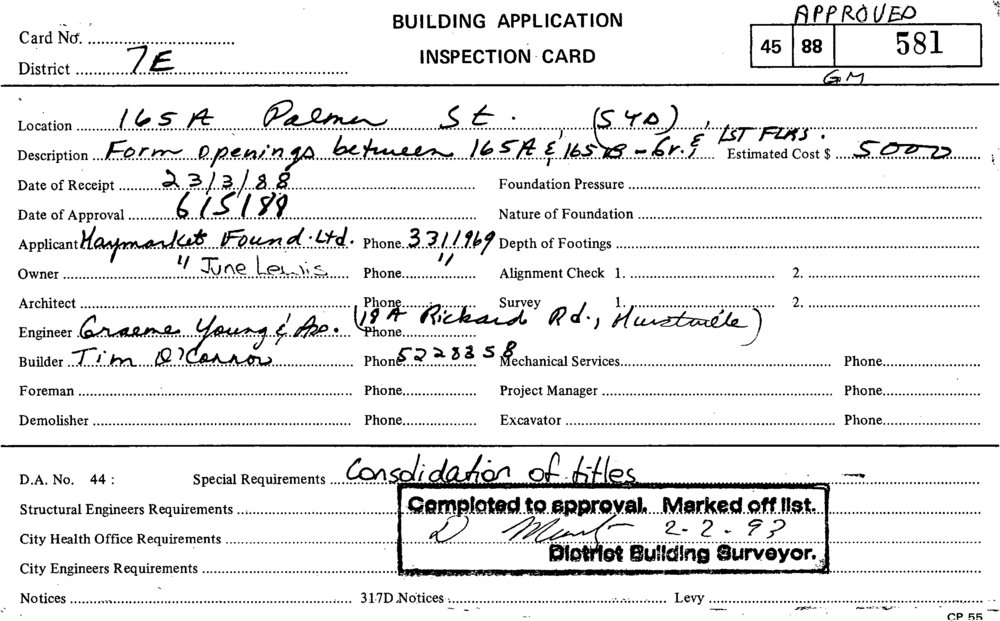 BUILDING APPLICATION
APPROVED
Card No.
INSPECTION CARD
45 88 581
District 7E
GM
Location 165A Palmer St. (SYD)
Description Form openings between 165A & 165B - Gr. & 1ST FLRS. Estimated Cost $ 5000
Date of Receipt 23/3/88 Foundation Pressure
Date of Approval 6/5/88 Nature of Foundation
Applicant Haymarket Found. Ltd. Phone 3311969 Depth of Footings
Owner " June Lewis Phone " Alignment Check 1. 2.
Architect Phone Survey 1. 2.
Engineer Graeme Young & Ass. (18A Rickard Rd., Hurstville) Phone
Builder Tim O'Connor Phone 5228358 Mechanical Services Phone
Foreman Phone Project Manager Phone
Demolisher Phone Excavator Phone
D.A. No. 44 : Special Requirements Consolidation of titles
Structural Engineers Requirements Completed to approval. Marked off list.
City Health Office Requirements D 2-2-93
District Building Surveyor.
City Engineers Requirements
Notices 317D Notices Levy
CP 55